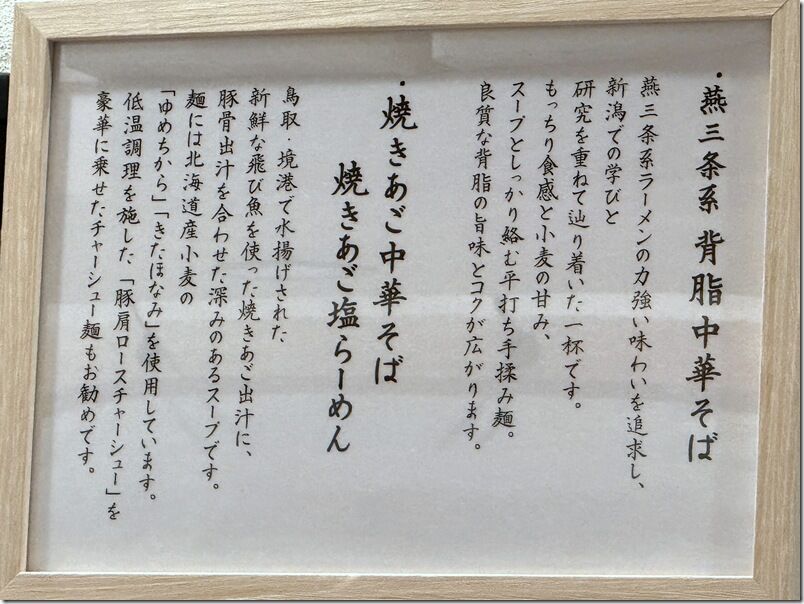 ・燕三条系 背脂中華そば
燕三条系ラーメンの力強い味わいを追求し、
新潟での学びと
研究を重ねて辿り着いた一杯です。
もっちり食感と小麦の甘み、
スープとしっかり絡む平打ち手揉み麺。
良質な背脂の旨味とコクが広がります。
・焼きあご中華そば
焼きあご塩らーめん
鳥取・境港で水揚げされた
新鮮な飛び魚を使った焼きあご出汁に、
豚骨出汁を合わせた深みのあるスープです。
麺には北海道産小麦の
「ゆめちから」「きたほなみ」を使用しています。
低温調理を施した、「豚肩ロースチャーシュー」を
豪華に乗せたチャーシュー麺もお勧めです。